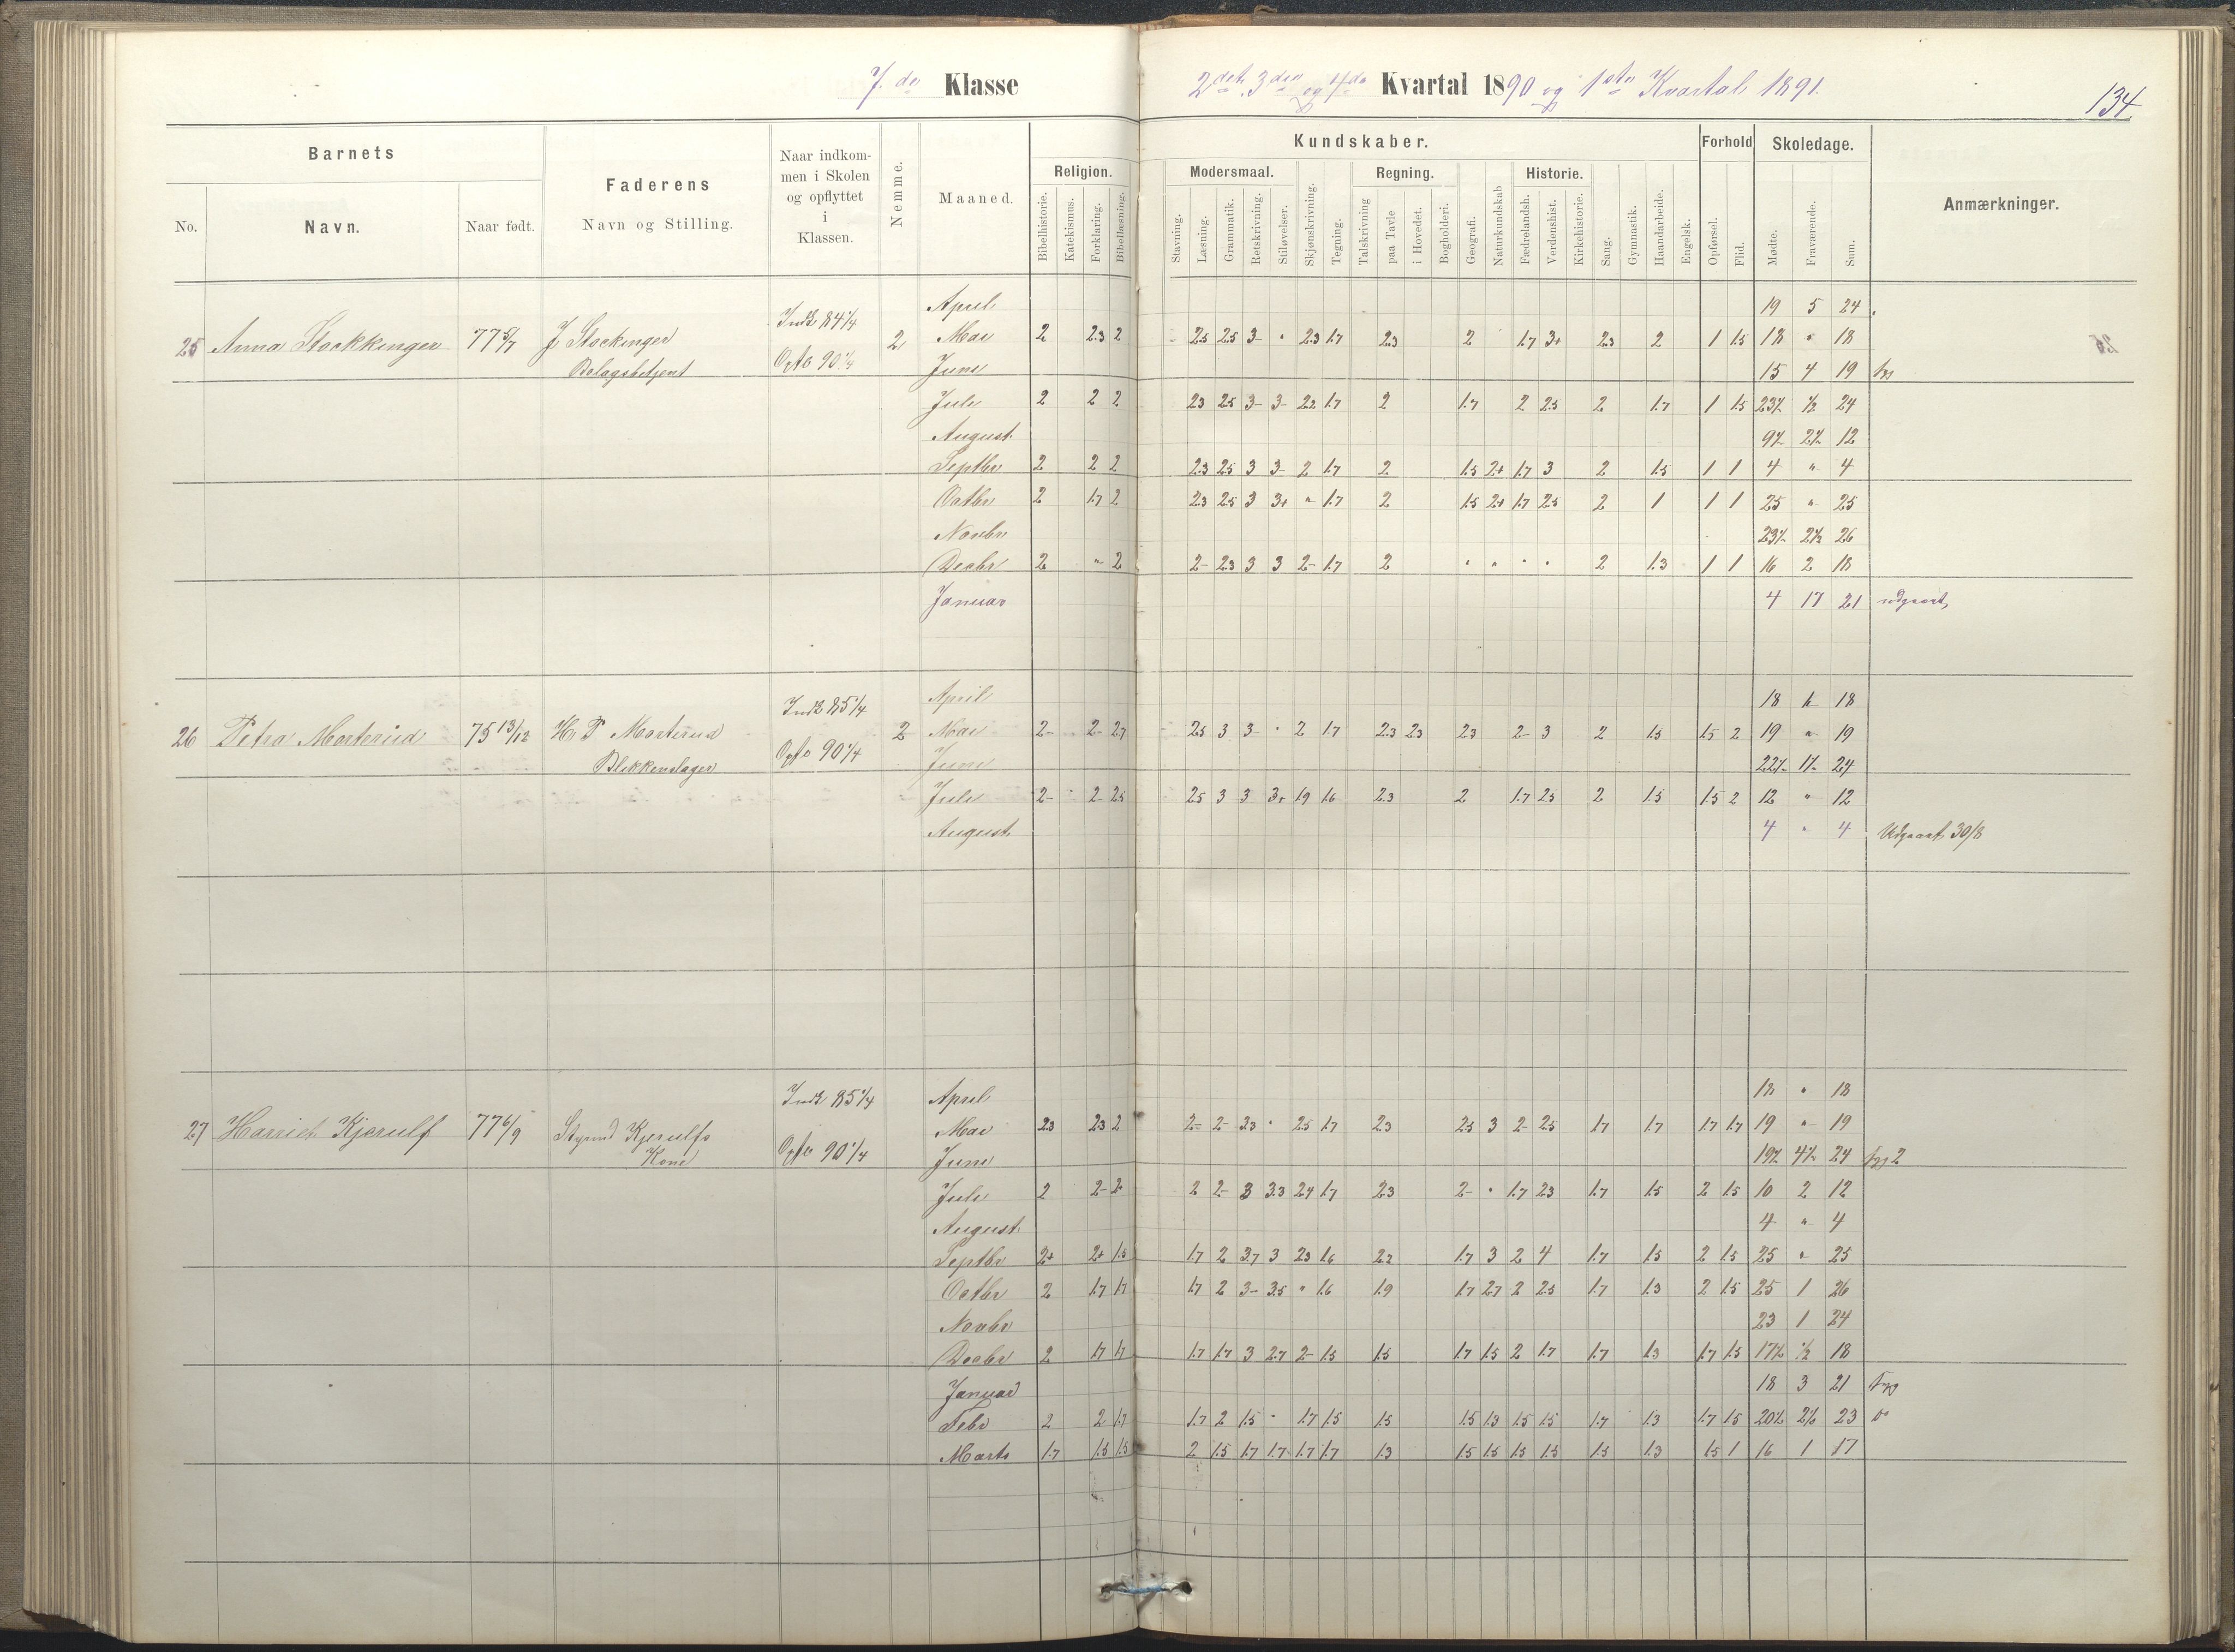 7de Klasse 2det, 3die og 4de Kvartal 1890 og 1ste Kvartal 1891.
134
Barnets
No.
Navn.
Naar født.
Faderens
Navn og Stilling.
Naar indkom-
men i Skolen
og opflyttet
i
Klassen.
Nemme.
Maaned.
Kundskaber.
Religion.
Bibelhistorie.
Katekismus.
Forklaring.
Bibellæsning.
Modersmaal.
Stavning.
Læsning.
Grammatik.
Retskrivning.
Stiløvelser.
Skjønskrivning.
Tegning.
Regning.
Talskrivning
paa Tavle
i Hovedet.
Bogholderi.
Geografi.
Naturkundskab
Historie.
Fædrelandsh.
Verdenshist.
Kirkehistorie.
Sang.
Gymnastik.
Haandarbeide.
Engelsk.
Forhold
Opførsel.
Flid.
Skoledage.
Mødte.
Fraværende.
Sum.
Anmærkninger.
25 Anna Stockkinger 77 5/7 J Stockinger
Bolagsbetjent
Indk 84 1/4
Opfl 90 1/4
2
April 19 5 24
Mai 2 2.3 2 2.5 2.5 3- " 2.3 1.7 2.3 2 1.7 3+ 2.3 2 1 1.5 18 " 18
Juni 15 4 19
Juli 2 2 2 2.3 2.5 3- 3- 2.2 1.7 2 1.7 2 2.5 2 1.7 1 1.5 23½ ½ 24
August 9½ 2½ 12
Septbr 2 2 2 2.3 2.5 3 3- 2 1.7 2 1.5 2+ 1.7 3 2 1.5 1 1 4 " 4
Octbr 2 1.7 2 2.3 2.5 3 3+ " 1.7 2 1.5 2+ 1.7 2.5 2 1 1 1 25 " 25
Novbr 23½ 2½ 26
Decbr 2 " 2 2- 2.3 3 3 2- 1.7 2 " " " " 2 1.3 1 1 16 2 18
Januar 4 17 21 udgaaet,
26 Petra Morterud 75 13/12 H P Morterud
Blikkenslager
Indk 85 1/4
Opfl 90 1/4
2
April 18 " 18
Mai 2- 2- 2.7 2.5 3 3- " 2 1.7 2.3 2.3 2.3 2- 3 2 1.5 1.5 2 19 " 19
Juni 22½ 1½ 24
Juli 2- 2- 2.5 2.5 3 3 3+ 1.9 1.6 2.3 2 1.7 2.5 2 1.5 1.5 2 12 " 12
August 4 " 4 Udgaaet 30/8
27 Harriet Kjerulf 77 6/9 Styrmd Kjerulfs
Kone
Indk 85 1/4
Opfl 90 1/4
April 18 " 18
Mai 2.3 2.3 2 2- 2- 2.3 " 2.5 1.7 2.3 2.5 3 2- 2.5 1.7 1.7 1.7 1.7 19 " 19
Juni 19½ 4½ 24
Juli 2 2- 2- 2 2- 3 3.3 2.4 1.7 2.3 2- " 1.7 2.3 1.7 1.5 2 1.5 10 2 12
August 4 " 4
Septbr 2+ 2+ 1.5 1.7 2 3.7 3 2.3 1.6 2.2 1.7 3 2 4 1.7 1.5 2 1.5 25 " 25
Octbr 2 1.7 1.7 1.7 2 3- 3.5 " 1.6 1.9 1.7 2.7 2 2.5 1.7 1.3 2 1.5 25 1 26
Novbr 23 1 24
Decbr 2 1.7 1.7 1.7 1.7 3 2.7 2- 1.5 1.5 1.7 1.5 2 1.7 1.7 1.3 1.7 1.5 17½ ½ 18
Januar 18 3 21
Febr 2 2 1.7 1.7 2 1.5 " 1.7 1.5 1.5 1.5 1.3 1.5 1.5 1.7 1.3 1.7 1.5 20½ 2½ 23
Marts 1.7 1.5 1.5 2 1.5 1.7 1.7 1.7 1.7 1.3 1.5 1.5 1.5 1.5 1.5 1.3 1.5 1 16 1 17